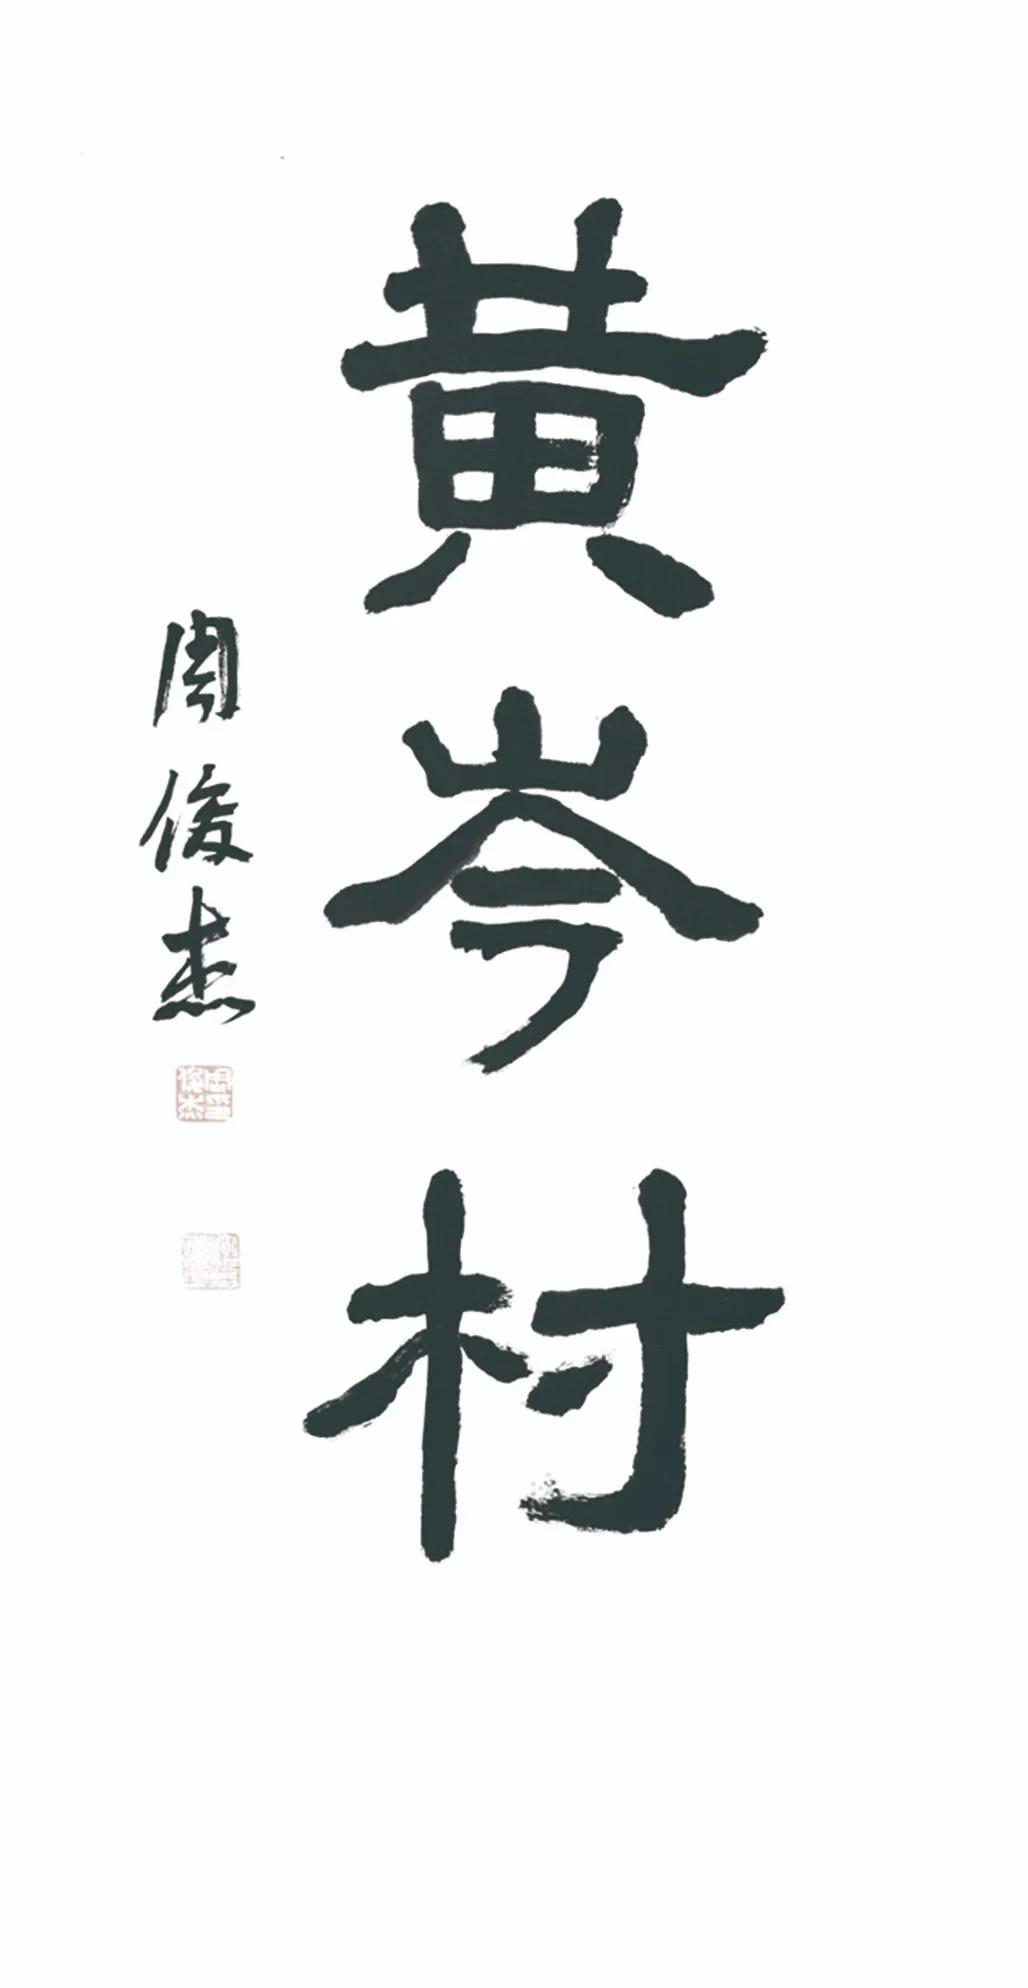 黄岑村
周俊杰
周俊杰印